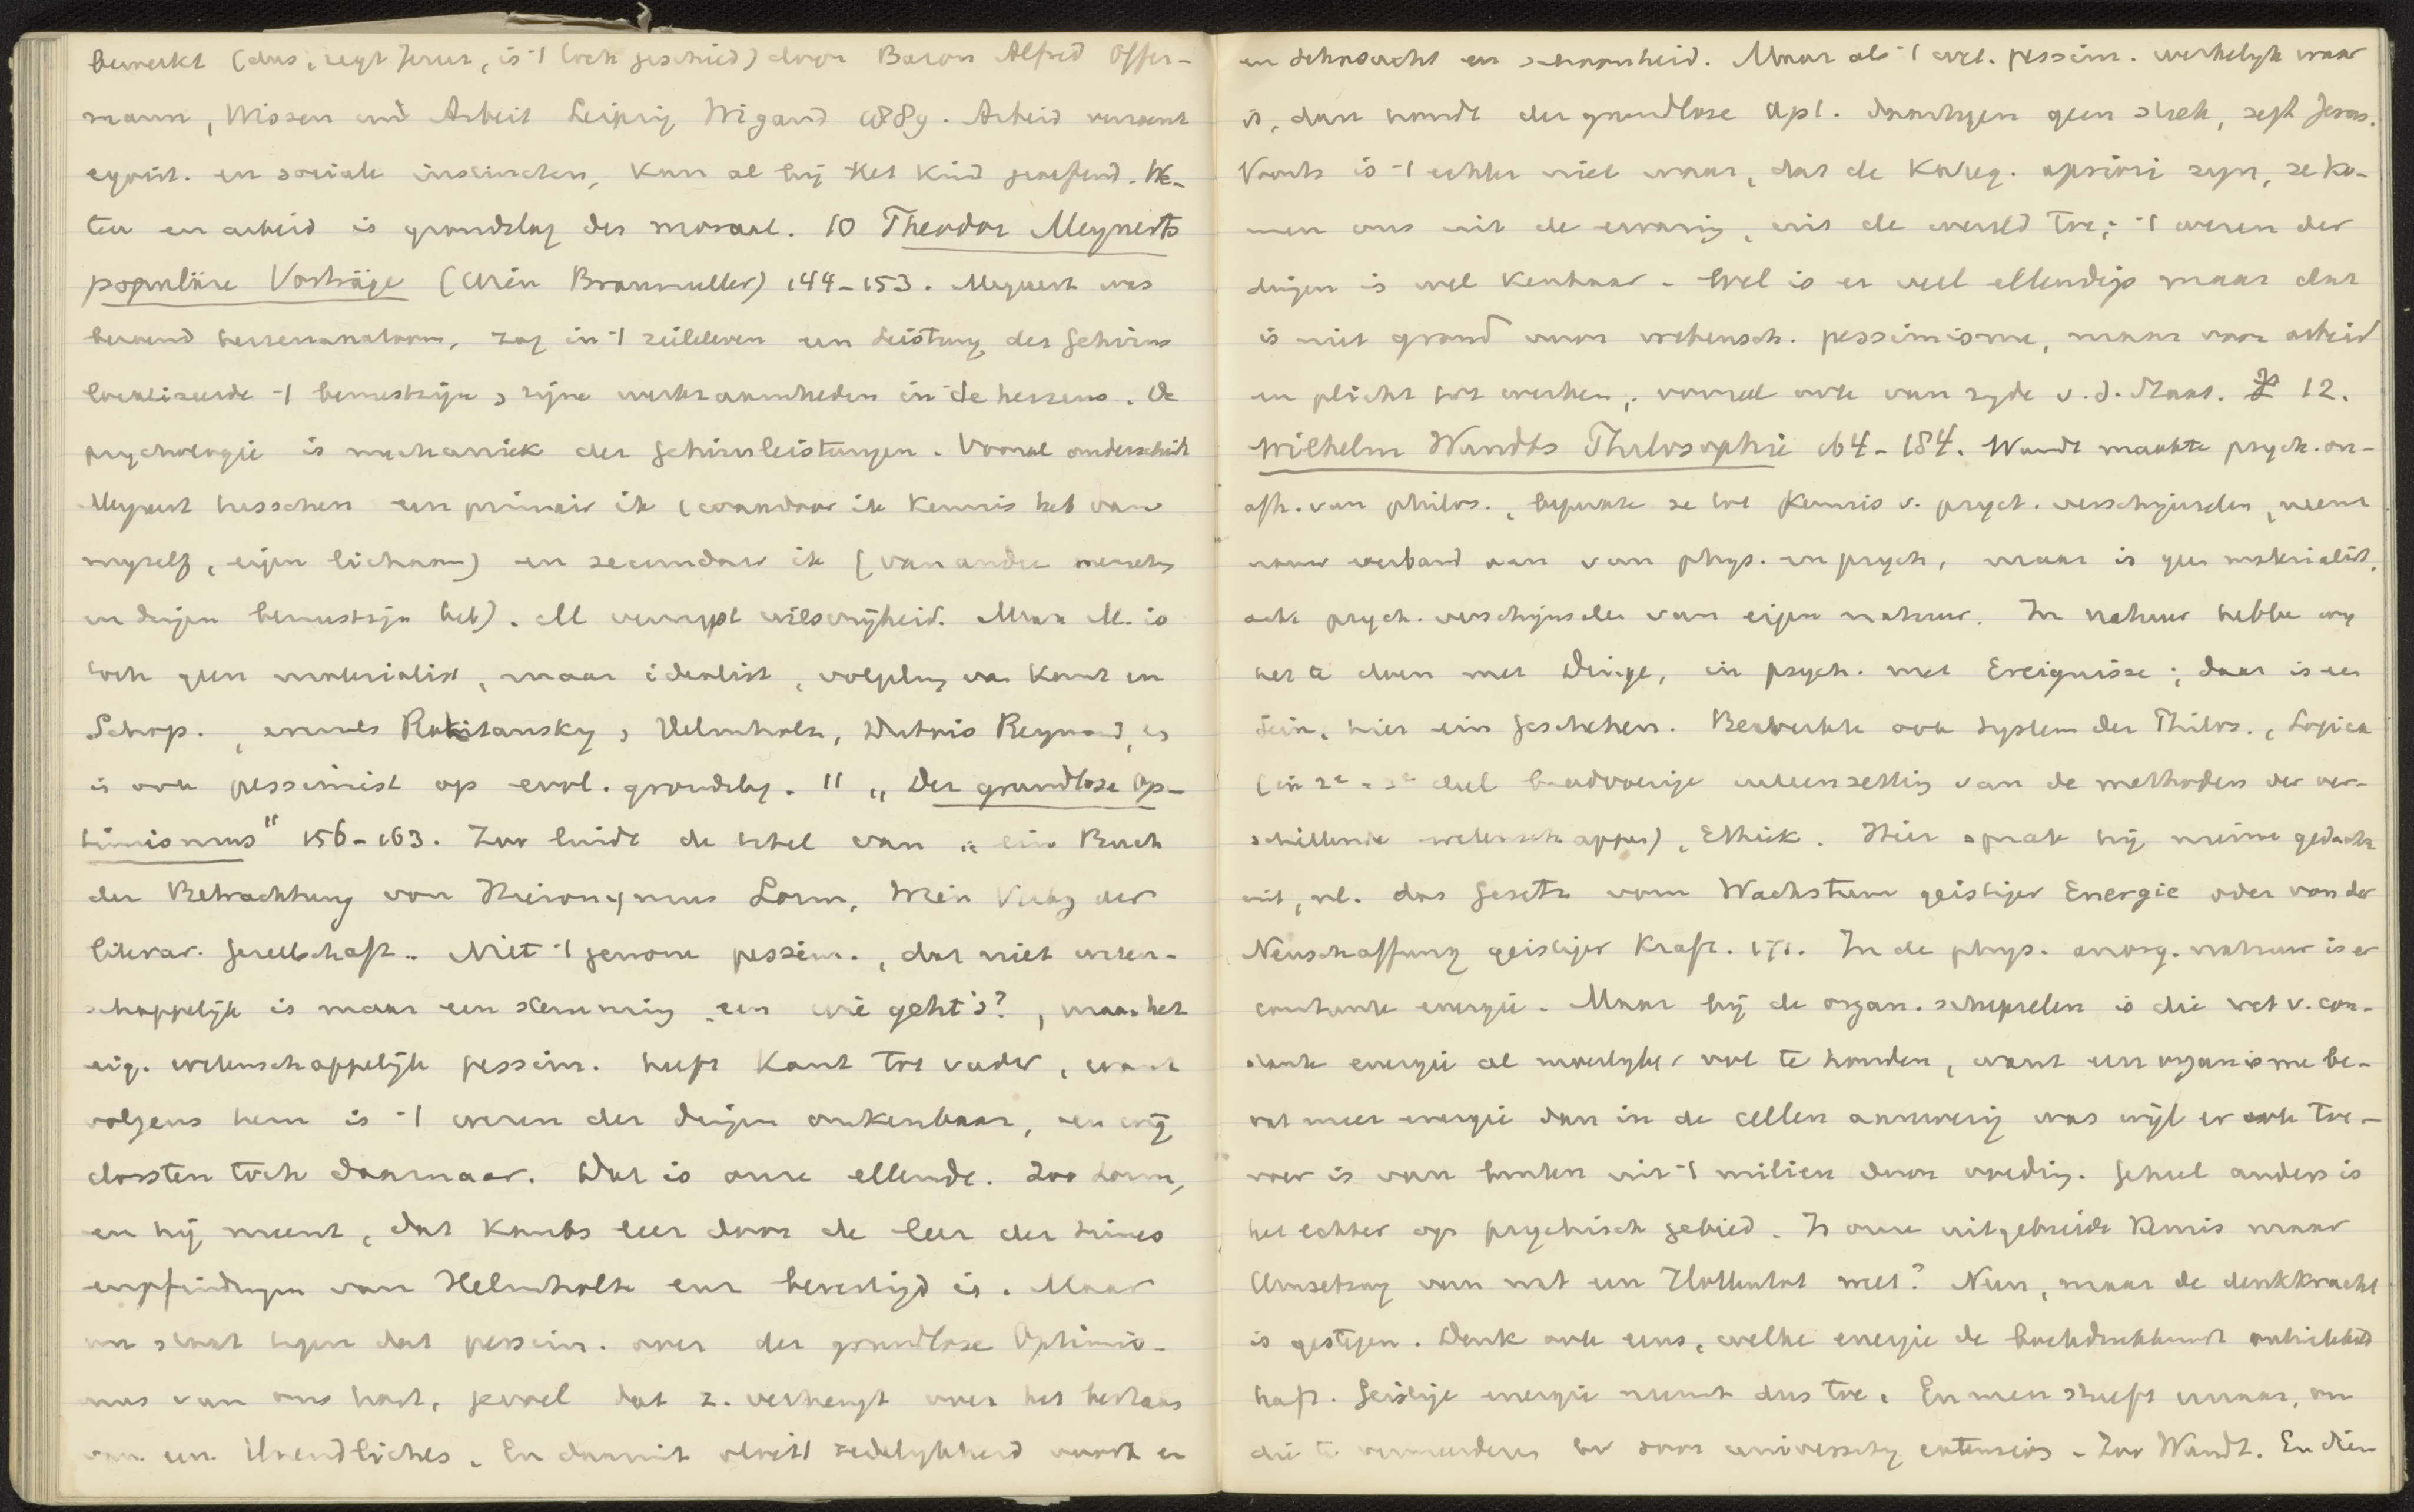 bewerkt (dus, zegt Jerus., is -1 boek geschied) door Baron Alfred Offer-
mann, Wissen und Arbeit Leipzig Wigand 1889. Arbeid vereent
egoist. en sociale instincten, kan al bij het kind geoefend. We-
ten en arbeid is grondslag der moraal. 10 Theodor Meynerts
populäre Vorträge (Wien Braumuller) 144-153. Meynert was
beroemd hersenanatoom, zag in -1 zieleleven een Leistung des Gehirns
localiseerde -1 bewustzijn & zijne werkzaamheden in de hersens. De
psychologie is mechaniek der Gehirnleistungen. Vooral onderscheidt
Meynert tusschen een primair ik (waardoor ik kennis heb van
myzelf, eigen lichaam) en secundair ik (van andre menschen
en dingen bewustzijn heb). M verwerpt wilsvrijheid. Maar M. is
toch geen materialist, maar idealist, volgeling van Kant en
Schop., evenals Rokitansky, Helmholtz, Dubois Reymond, en
is ook pessimist op evol. grondslag. 11 „Der grundlose Op-
timismus" 156-163. Zoo luidt de titel van „ein Buch
der Betrachtung von Hieronymus Lorm, Wien Verlag der
literar. Gesellschaft.. Niet -1 gewone pessim., dat niet weten-
schappelijk is maar een stemming, een wie geht's?, maar het
eig. wetenschappelijk pessim. heeft Kant tot vader, want
volgens hem is -1 wezen der dingen onkenbaar, en wij
dorsten toch daarnaar. Dat is onze ellende. Zoo Lorm,
en hij meent, dat Kants leer door de leer der Sinnes
empfindungen van Helmholtz enz bevestigd is. Maar
nu staat tegen dat pessim. over der grundlose Optimis-
mus van ons hart, gevoel dat z. verheugt over het bestaan
van een Unendliches. En daaruit vloeit zedelykheid voort en
en Sehnsucht en schoonheid. Maar als -1 wet. pessim. werkelyk waar
is, dan houdt der grundlose Opt. daartegen geen steek, zegt Jerus.
Voorts is -1 echter niet waar, dat de Kateg. apriori zyn, ze ko-
men ons uit de ervaring, uit de wereld toe; -1 wezen der
dingen is wel kenbaar. Wel is er veel ellendigs maar dat
is niet grond voor wetensch. pessimisme, maar voor arbeid
en plicht tot werken, vooral ook van zyde v. d. Staat. 12.
Wilhelm Wundts Philosophie 164-184. Wundt maakte psych. on-
afh. van philos., beperkte ze tot kennis v. psych. verschijnselen, neemt
nauw verband aan van phys. en psych., maar is geen materialist,
acht psych. verschijnselen van eigen natuur. In natuur hebbe wy
het te doen met Dinge, in psych. met Ereignisse; daar is een
Sein, hier ein Geschehen. Bewerkte ook System der Philos., Logica
(in 2e - 3e deel breedvoerige uiteenzetting van de methoden der ver-
schillende wetenschappen), Ethik. Hier sprak hij nieuwe gedachte
uit, nl. das Gesetz vom Wachstum geistiger Energie oder von der
Neuschaffung geistiger Kraft. 171. In de phys. anorg. natuur is er
constante energie. Maar bij de organ. schepselen is die wet v. con-
stante energie al moeilyker vol te houden, want een organisme be-
vat meer energie dan in de cellen aanwezig was wijl er ook toe-
voer is van buiten uit -1 milieu door voeding. Geheel anders is
het echter op psychisch gebied. Is onze uitgebreide kennis maar
Umsetzung van wat een Hottentot weet? Neen, maar de denkkracht
is gestegen. Denk ook eens, welke energie de boekdrukkunst ontwikkeld
heeft. Geistige energie neemt dus toe. En men streeft ernaar, om
die te vermeerderen bv door university extension. Zoo Wundt. En dien